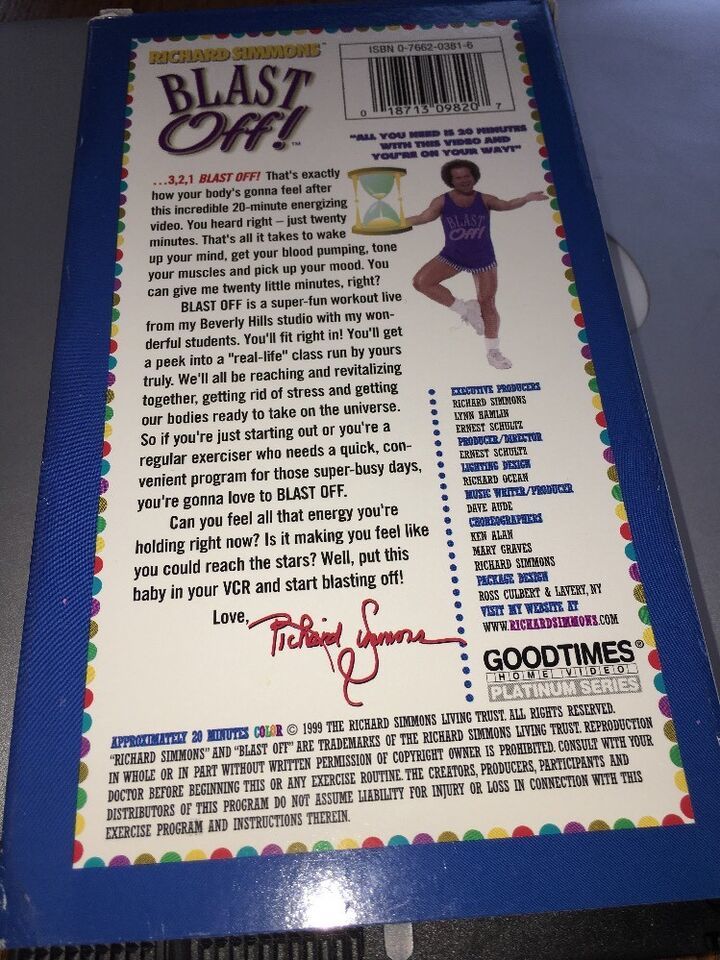 RICHARD SIMMONS™
BLAST
Off!™
ISBN 0-7662-0381-6
0 18713 09820 7
"ALL YOU NEED IS 20 MINUTES
WITH THIS VIDEO AND
YOU'RE ON YOUR WAY!"
BLAST
Off!
...3,2,1 BLAST OFF! That's exactly
how your body's gonna feel after
this incredible 20-minute energizing
video. You heard right – just twenty
minutes. That's all it takes to wake
up your mind, get your blood pumping, tone
your muscles and pick up your mood. You
can give me twenty little minutes, right?
BLAST OFF is a super-fun workout live
from my Beverly Hills studio with my won-
derful students. You'll fit right in! You'll get
a peek into a "real-life" class run by yours
truly. We'll all be reaching and revitalizing
together, getting rid of stress and getting
our bodies ready to take on the universe.
So if you're just starting out or you're a
regular exerciser who needs a quick, con-
venient program for those super-busy days,
you're gonna love to BLAST OFF.
Can you feel all that energy you're
holding right now? Is it making you feel like
you could reach the stars? Well, put this
baby in your VCR and start blasting off!
Love,
Richard Simmons
EXECUTIVE PRODUCERS
RICHARD SIMMONS
LYNN HAMLIN
ERNEST SCHULTZ
PRODUCER/DIRECTOR
ERNEST SCHULTZ
LIGHTING DESIGN
RICHARD OCEAN
MUSIC WRITER/PRODUCER
DAVE AUDE
CHOREOGRAPHERS
KEN ALAN
MARY GRAVES
RICHARD SIMMONS
PACKAGE DESIGN
ROSS CULBERT & LAVERY, NY
VISIT MY WEBSITE AT
WWW.RICHARDSIMMONS.COM
GOODTIMES®
HOME VIDEO
PLATINUM SERIES
APPROXIMATELY 20 MINUTES COLOR © 1999 THE RICHARD SIMMONS LIVING TRUST. ALL RIGHTS RESERVED.
"RICHARD SIMMONS" AND "BLAST OFF" ARE TRADEMARKS OF THE RICHARD SIMMONS LIVING TRUST. REPRODUCTION
IN WHOLE OR IN PART WITHOUT WRITTEN PERMISSION OF COPYRIGHT OWNER IS PROHIBITED. CONSULT WITH YOUR
DOCTOR BEFORE BEGINNING THIS OR ANY EXERCISE ROUTINE. THE CREATORS, PRODUCERS, PARTICIPANTS AND
DISTRIBUTORS OF THIS PROGRAM DO NOT ASSUME LIABILITY FOR INJURY OR LOSS IN CONNECTION WITH THIS
EXERCISE PROGRAM AND INSTRUCTIONS THEREIN.